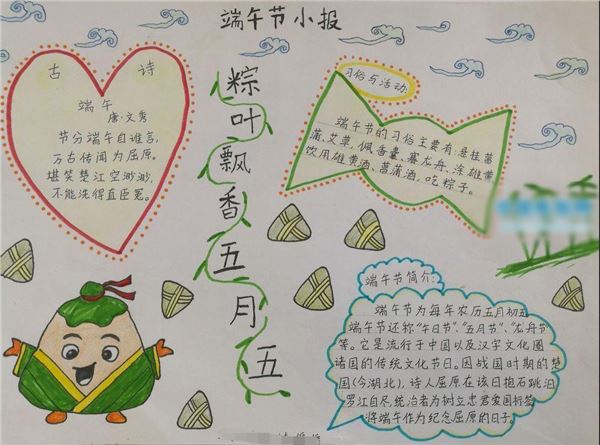 端午节小报
古诗
端午
唐·文秀
节分端午自谁言,
万古传闻为屈原。
堪笑楚江空渺渺,
不能洗得直臣冤。
粽叶飘香五月五
习俗与活动
端午节的习俗主要有:悬挂菖
蒲、艾草、佩香囊、赛龙舟、涂雄黄
饮用雄黄酒、菖蒲酒、吃粽子。
端午节简介:
端午节为每年农历五月初五
端午节还称"午日节"、"五月节"、"龙舟节"
等。它是流行于中国以及汉字文化圈
诸国的传统文化节日。因战国时期的楚
国(今湖北),诗人屈原在该日抱石跳汨
罗江自尽,统治者为树立忠君爱国标签
将端午作为纪念屈原的日子。